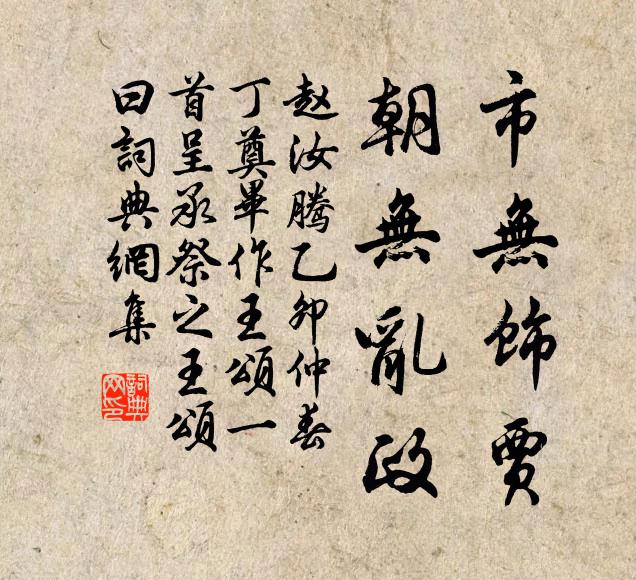 市無飾賈
朝無亂政
赵汝腾乙卯仲春
丁奠畢作王頌一
首呈承祭之王頌
曰詞典網集
詞典网印